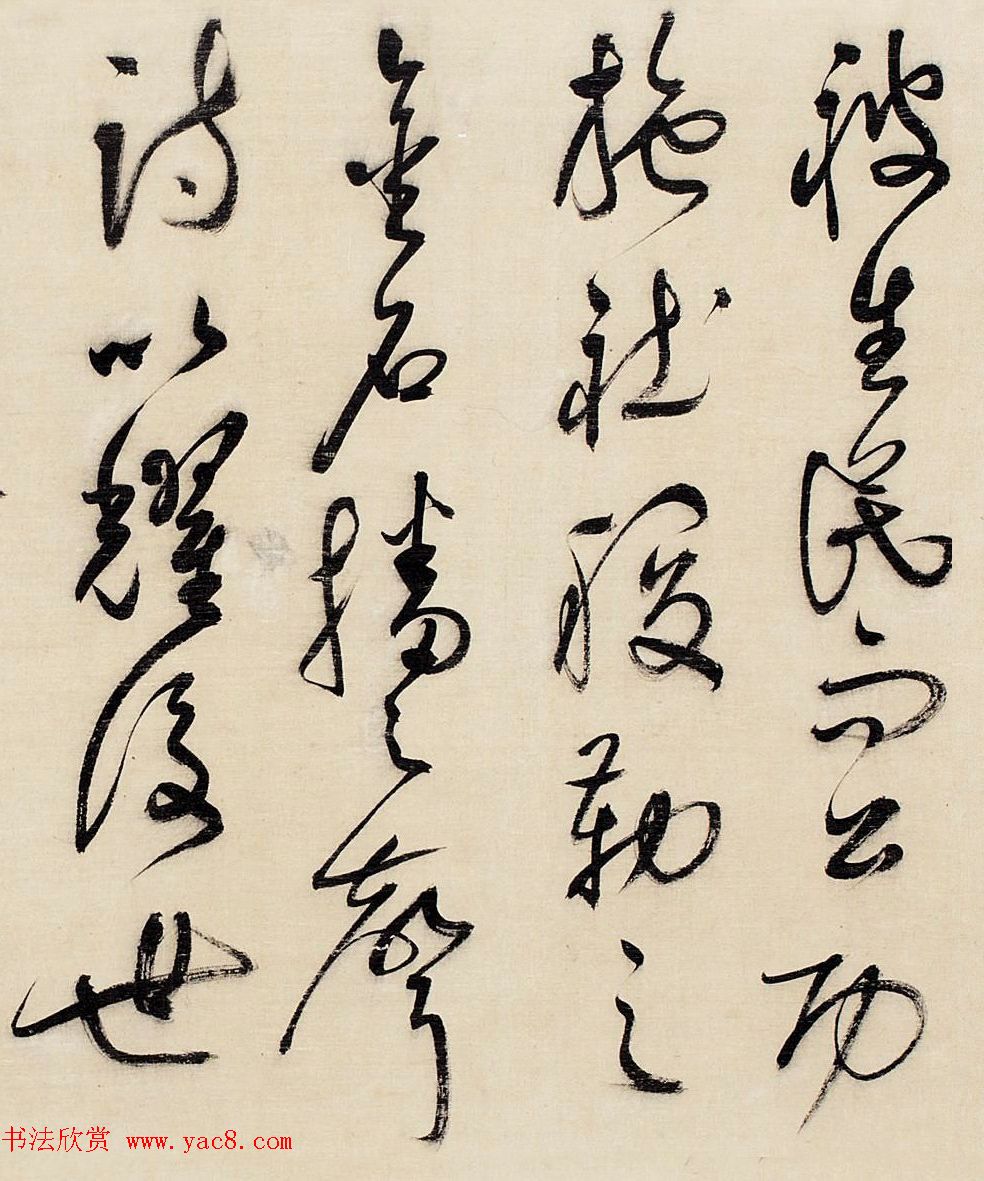 被生民而公功
施社稷勒之
金石播之聲
詩以耀後世
书法欣赏 www.yac8.com